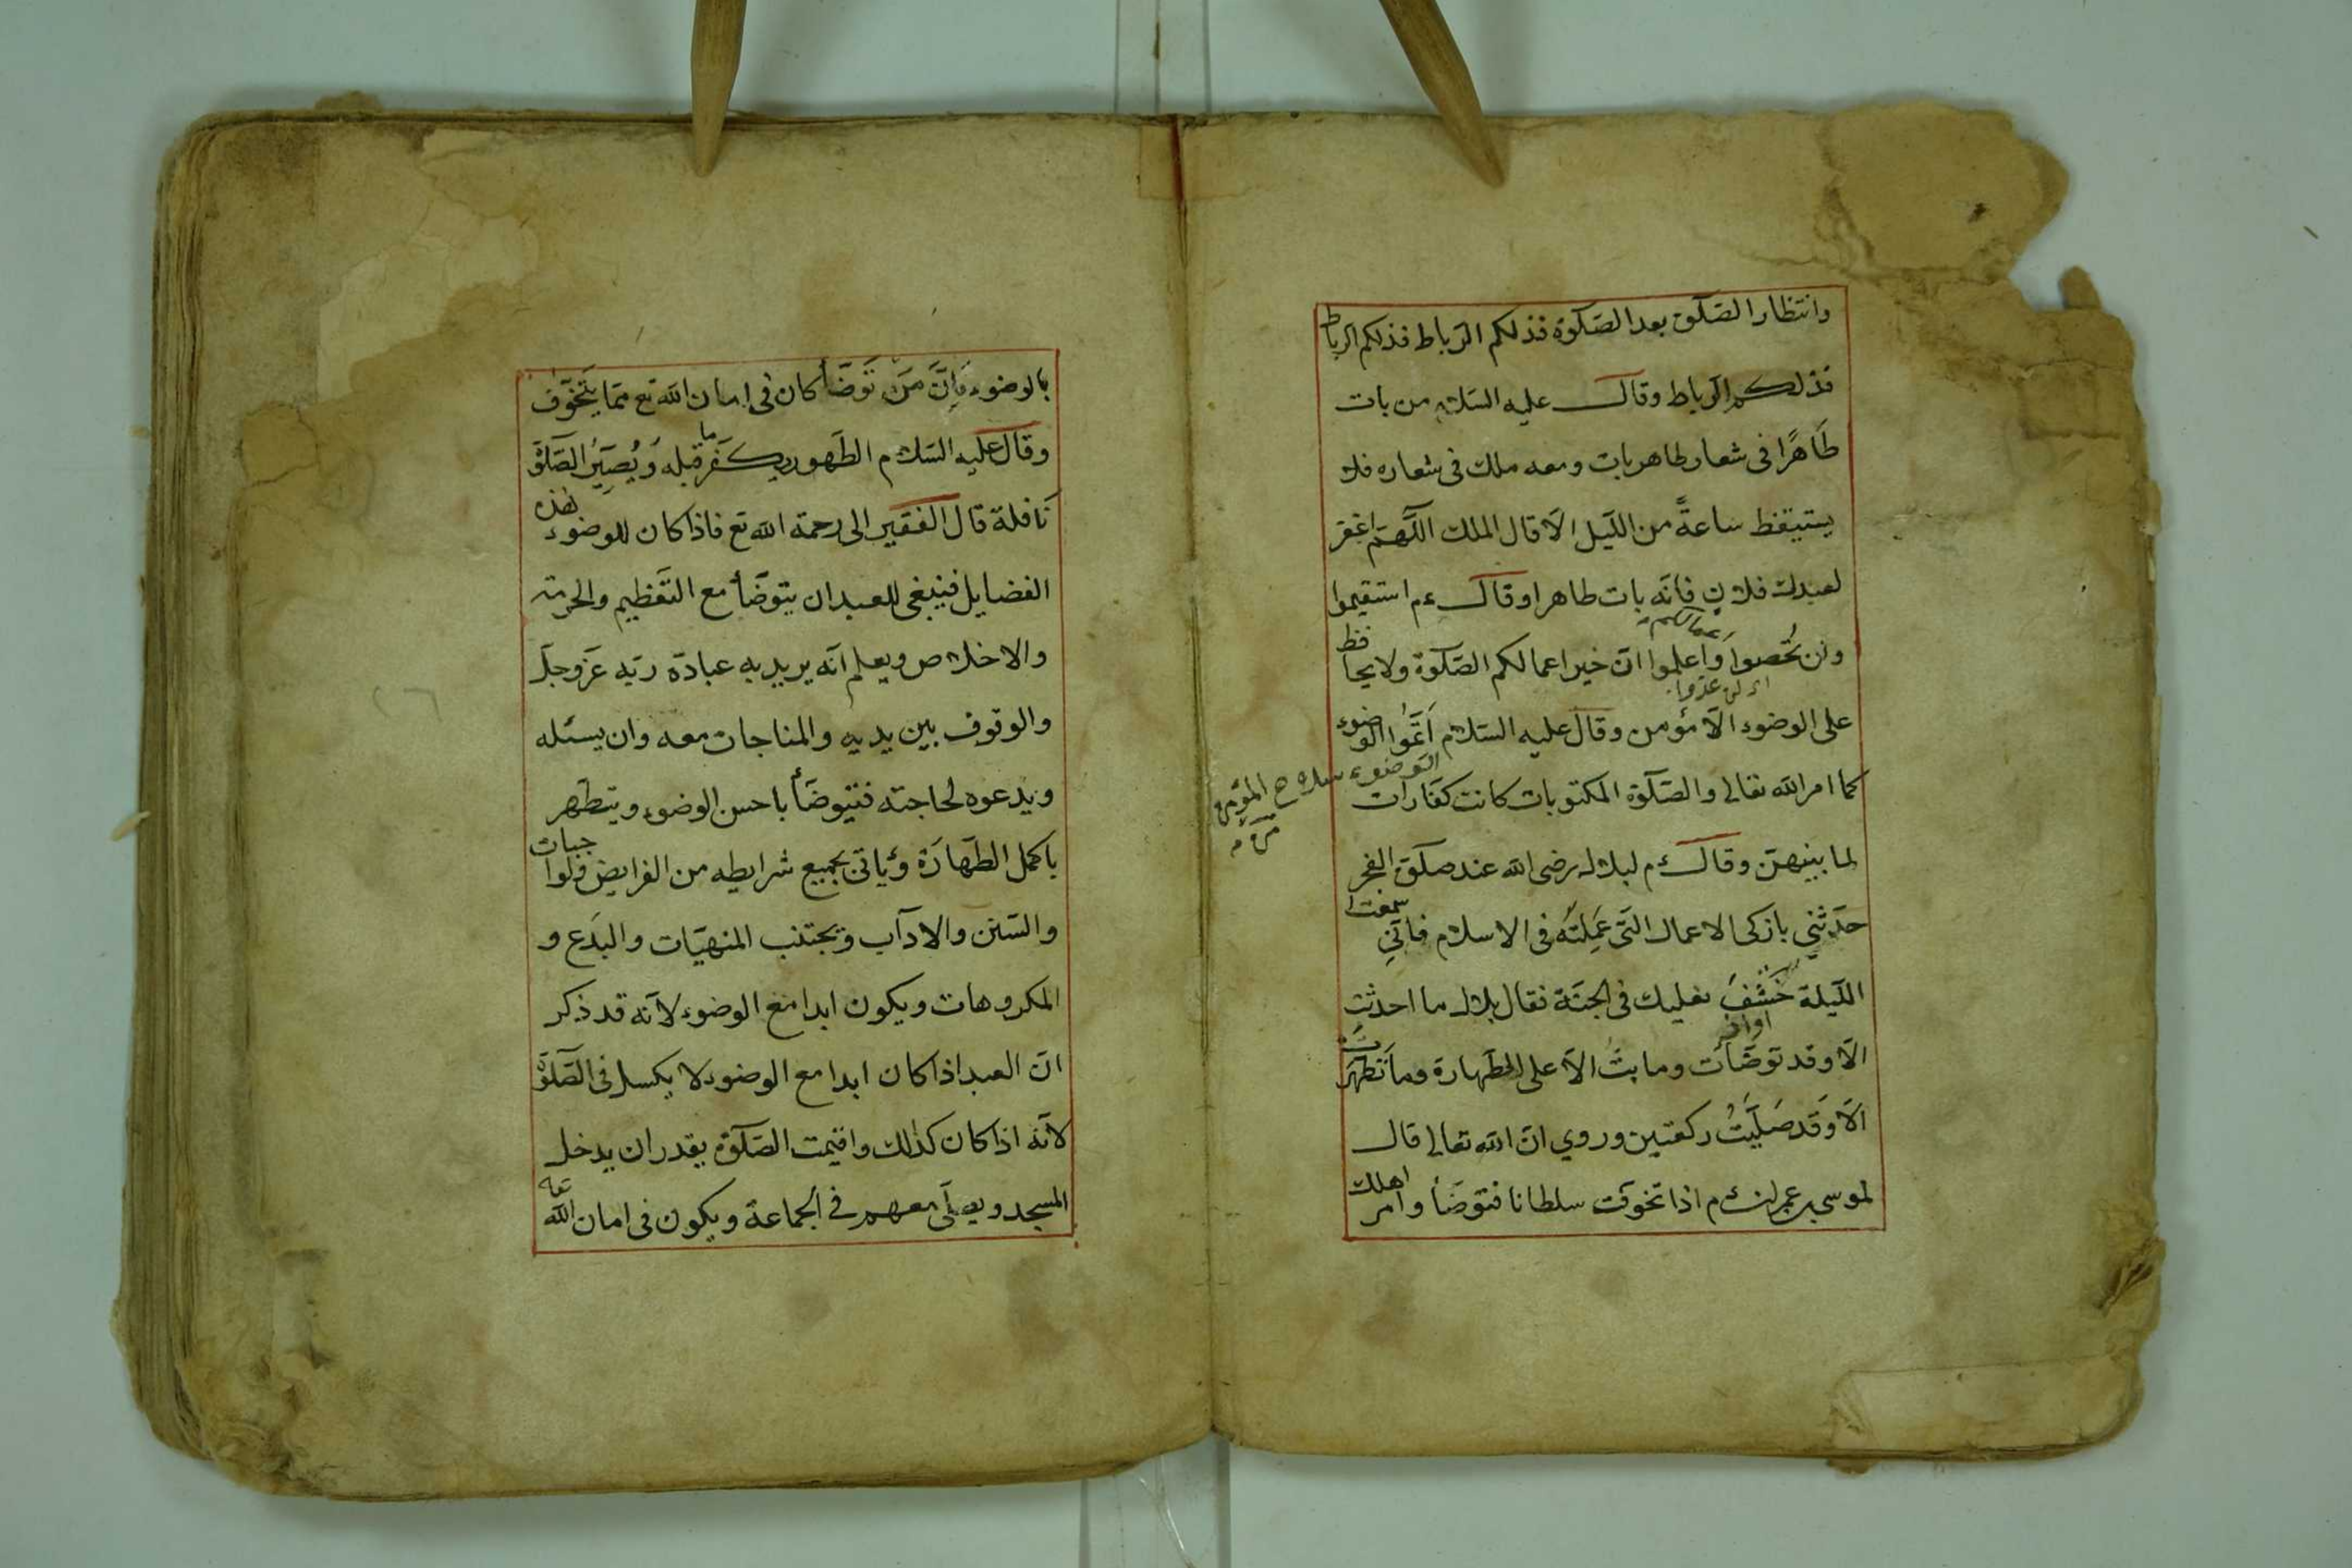 وانتظار الصّلوة بعد الصّلوة فذلكم الرّباط فذلكم الرباط
فذلكم الرّباط وقال عليه السّلام من بات
طَاهرًا فى شعار طاهر بات ومعه ملك فى شعاره فلا
يستيقظ ساعةً من اللّيل الّا قال الملك اللّهمّ اغفر
لعبدك فلان فانّه بات طاهرا وقال ءم استقيموا
ولن تُحصوا وَاعلموا انّ خير اعمالكم الصّلوة ولا يحافظ
اى لن عدّوا
على الوضوء الّا مؤمن وقال عليه السّلام اَتمُّوا الوضوء
الوضوء سلاح المؤمن
كما امر الله تعالى والصّلوة المكتوبات كانت كفّارات
لما بينهنّ وقال ءم لبلال رضى الله عند صلوة الفجر
حدّثنى بازكى الاعمال الّتى عَمِلْتَهُ فى الاسلام فانّى سمعت
اللّيلة خَشْفَ نعليك فى الجنّة فقال بلال ما احدثت
اواز
الّا وقد توضّأت وما بتّ الّا على الطّهارة وما تَطَهَّرت
الّا وَقَد صَلَّيْتُ ركعتين وروي انّ الله تعالى قال
لموسى بن عمران ءم اذا تخوّفت سلطانا فتوضّأ وامر اهلك
بالوضوء فَاِنَّ مَنْ تَوَضَّأ كان فى امان الله تع ممّا يَتَخَوَّف
وقال عليه السّلام الطّهور يكفّر ما قبله وَيُصَيِّرُ الصّلوة
نَافلة قال الفقير الى رحمة الله تع فاذا كان للوضوء هذه
الفضايل فينبغى للعبد ان يتوضّأ مع التّعظيم والحرمة
والاخلاص ويعلم انّه يريد به عبادة ربّه عزّ وجلّ
والوقوف بين يديه والمناجات معه وان يسئله
ويدعوه لحاجته فيتوضّأ باحسن الوضوء ويتطهر
باكمل الطّهارَة وياتى بجميع شرايطه من الفرايض والواجبات
والسّنن والاداب ويجتنب المنهيّات والبدَع و
المكروهات ويكون ابدا مع الوضوء لانّه قد ذكر
انّ العبد اذا كان ابدا مع الوضوء لا يكسل فى الصّلوة
لانّه اذا كان كذلك واقيمت الصّلوة يقدر ان يدخل
المسجد ويصلّى معهم فى الجماعة ويكون فى امان الله تعه